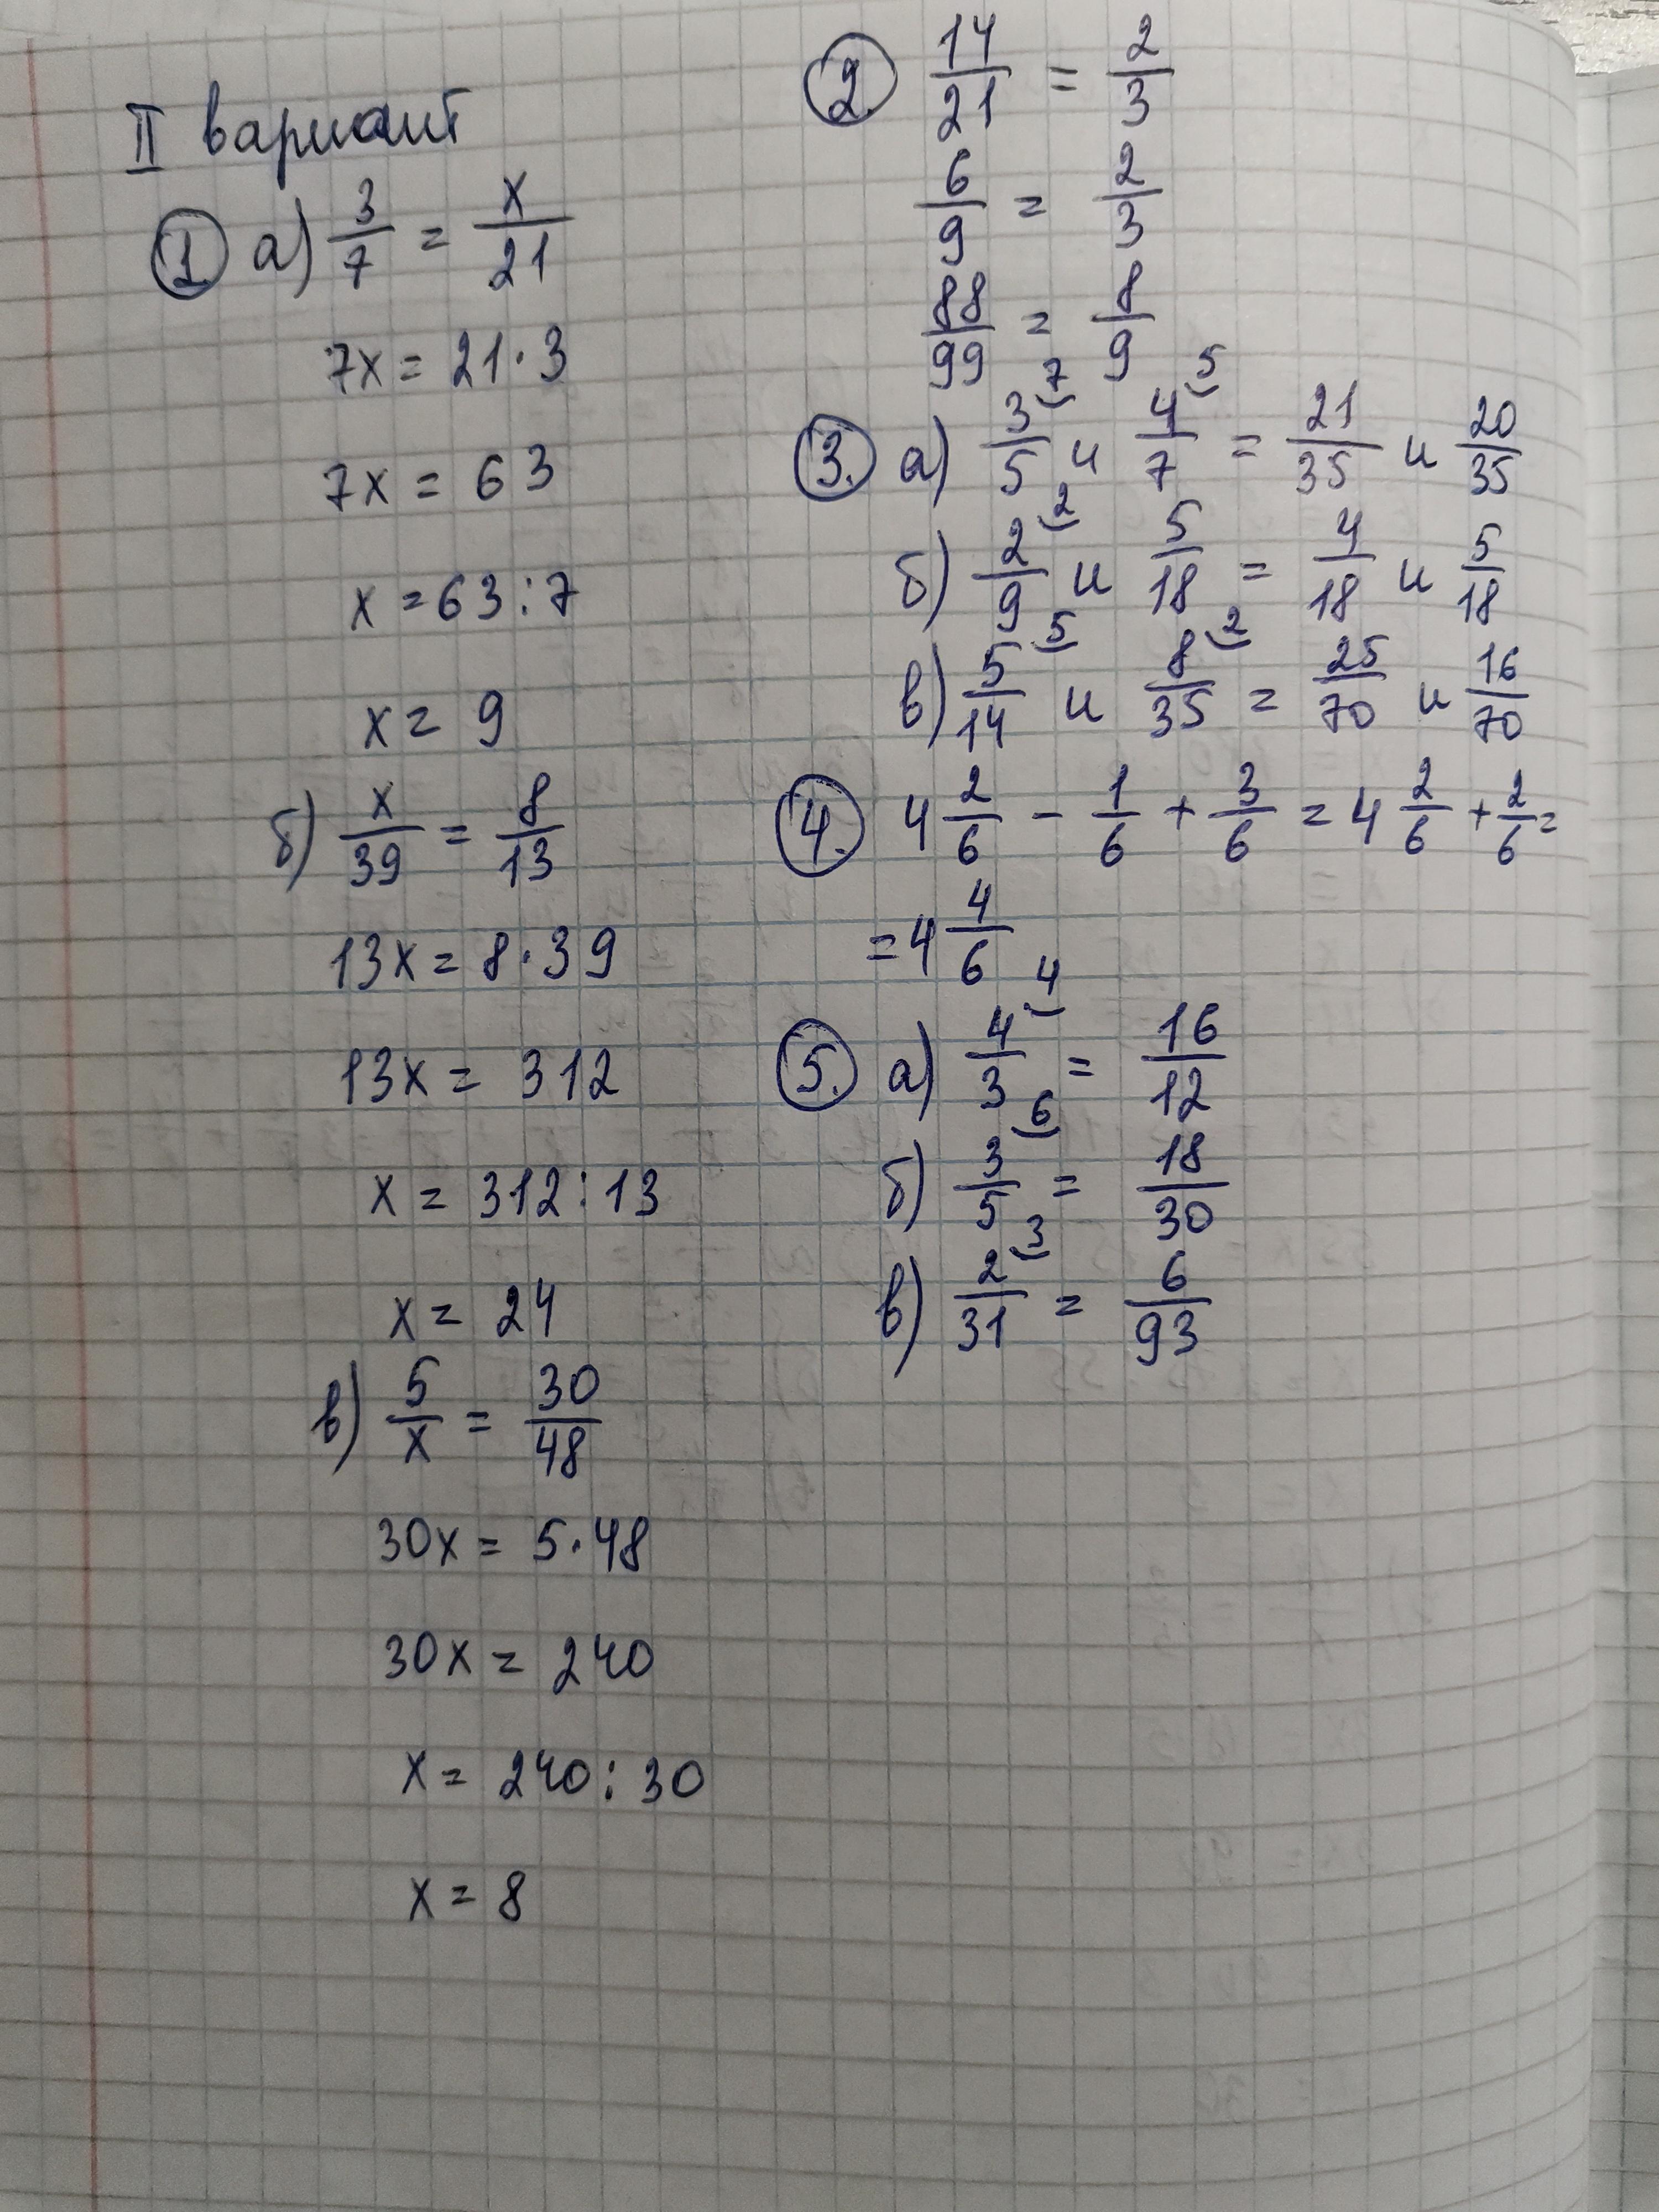 II вариант
① а) 3/7 = x/21
7x = 21·3
7x = 63
x = 63:7
x = 9
б) x/39 = 8/13
13x = 8·39
13x = 312
x = 312:13
x = 24
в) 5/x = 30/48
30x = 5·48
30x = 240
x = 240:30
x = 8
②. 14/21 = 2/3
6/9 = 2/3
88/99 = 8/9
③. а) 3/5 (7 и 4/7 (5 = 21/35 и 20/35
б) 2/9 (2 и 5/18 = 4/18 и 5/18
в) 5/14 (5 и 8/35 (2 = 25/70 и 16/70
④. 4 2/6 - 1/6 + 3/6 = 4 2/6 + 2/6 =
= 4 4/6
⑤. а) 4/3 (4 = 16/12
б) 3/5 (6 = 18/30
в) 2/31 (3 = 6/93